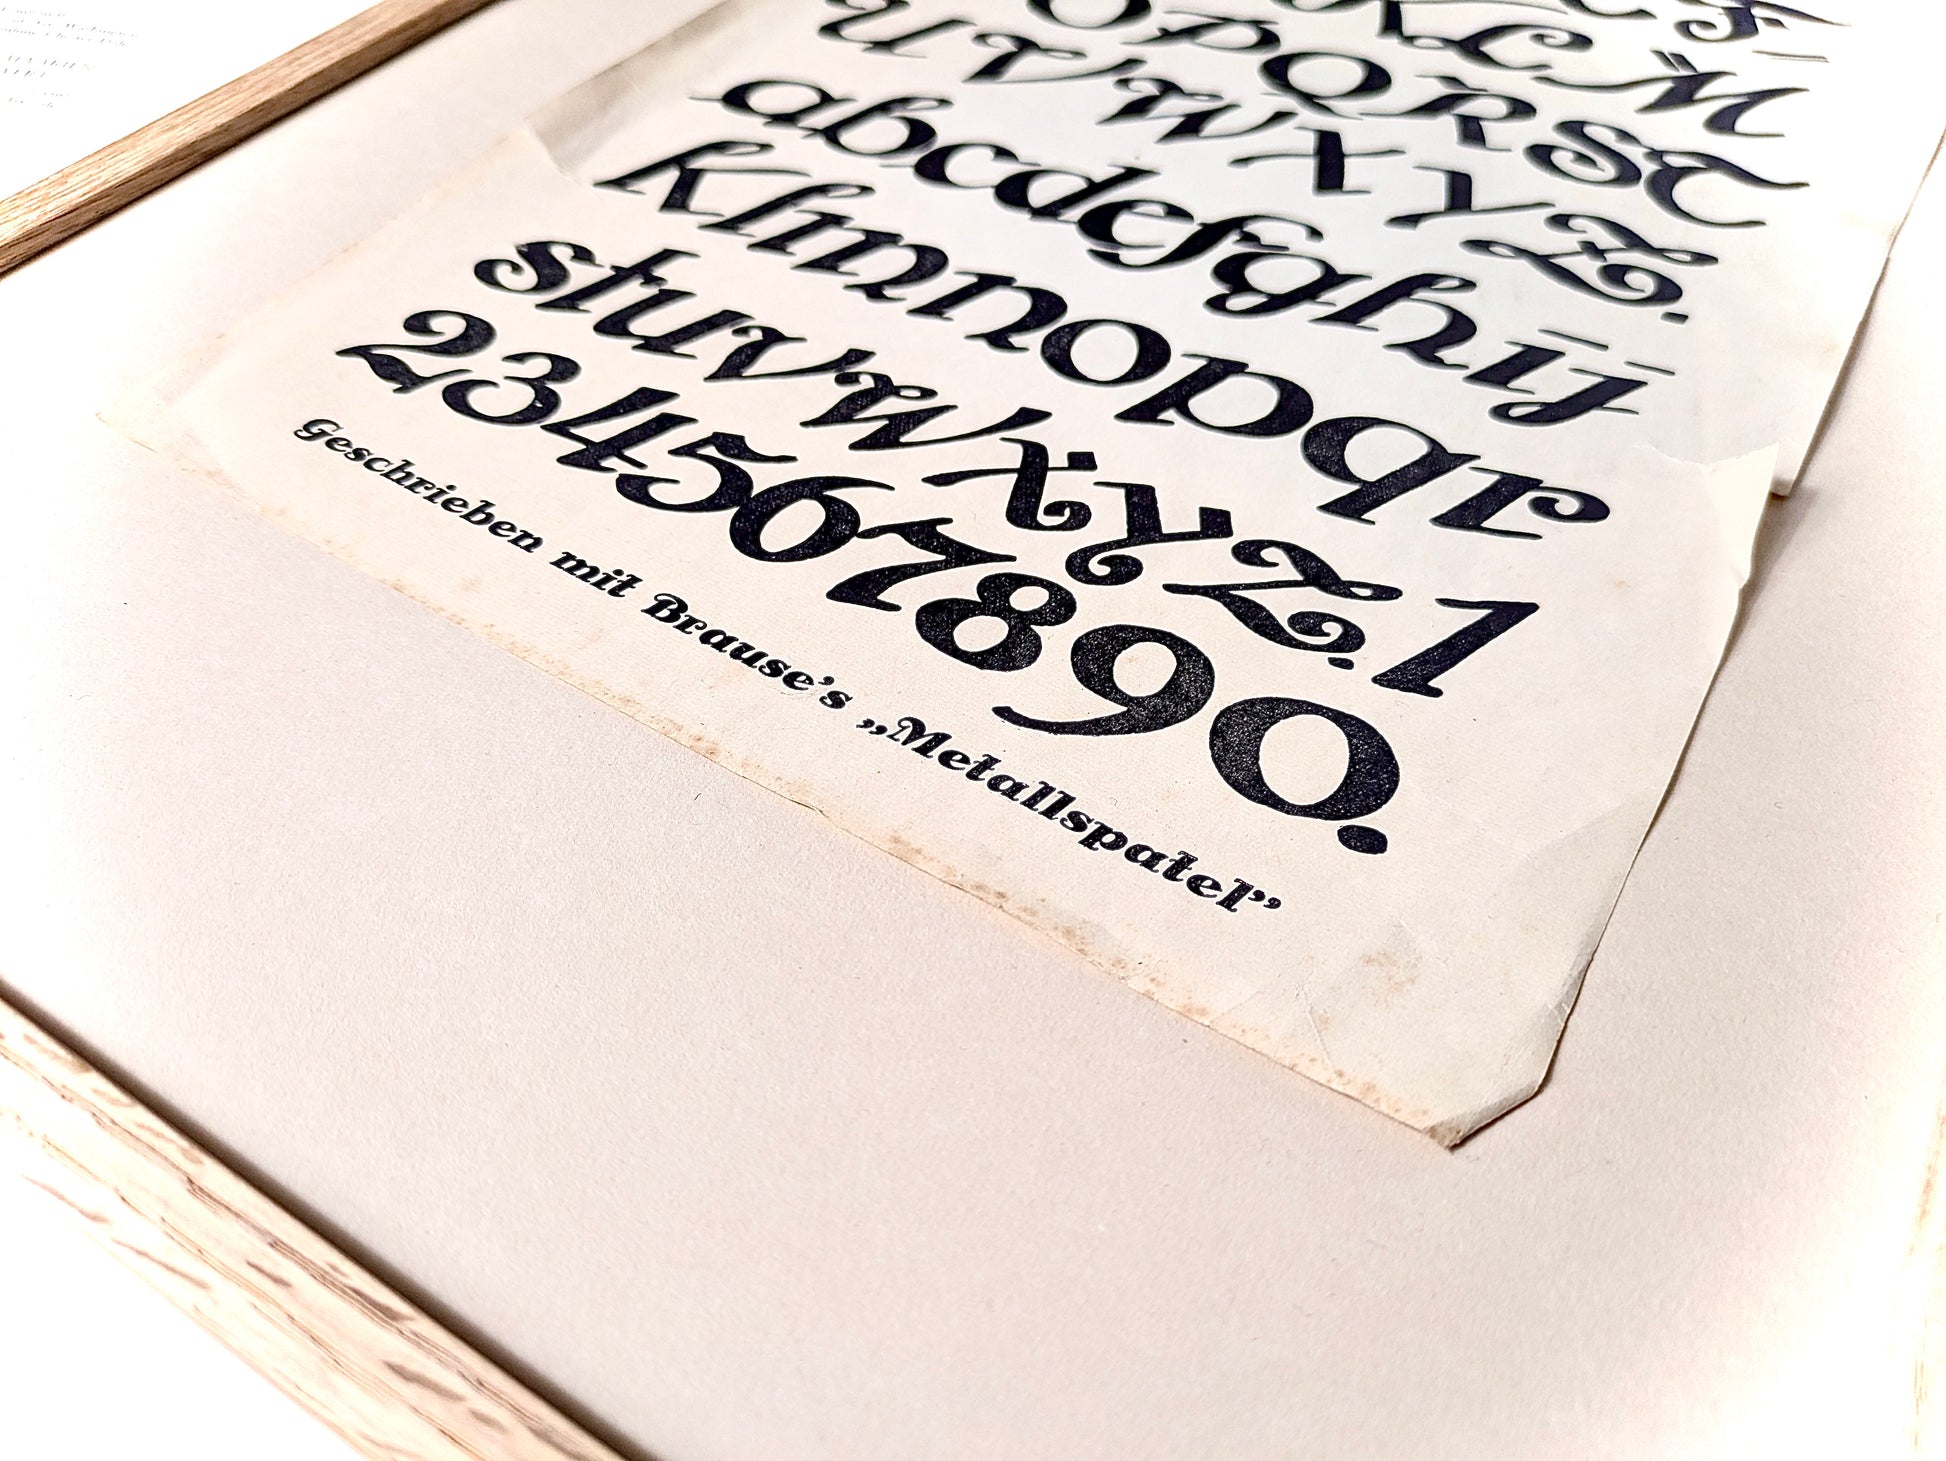 K L M
O P Q R S T
U V W X Y Z.
abcdefghij
klmnopqr
stuvwxyz. 1
234567890.
Geschrieben mit Brause's „Metallspatel”